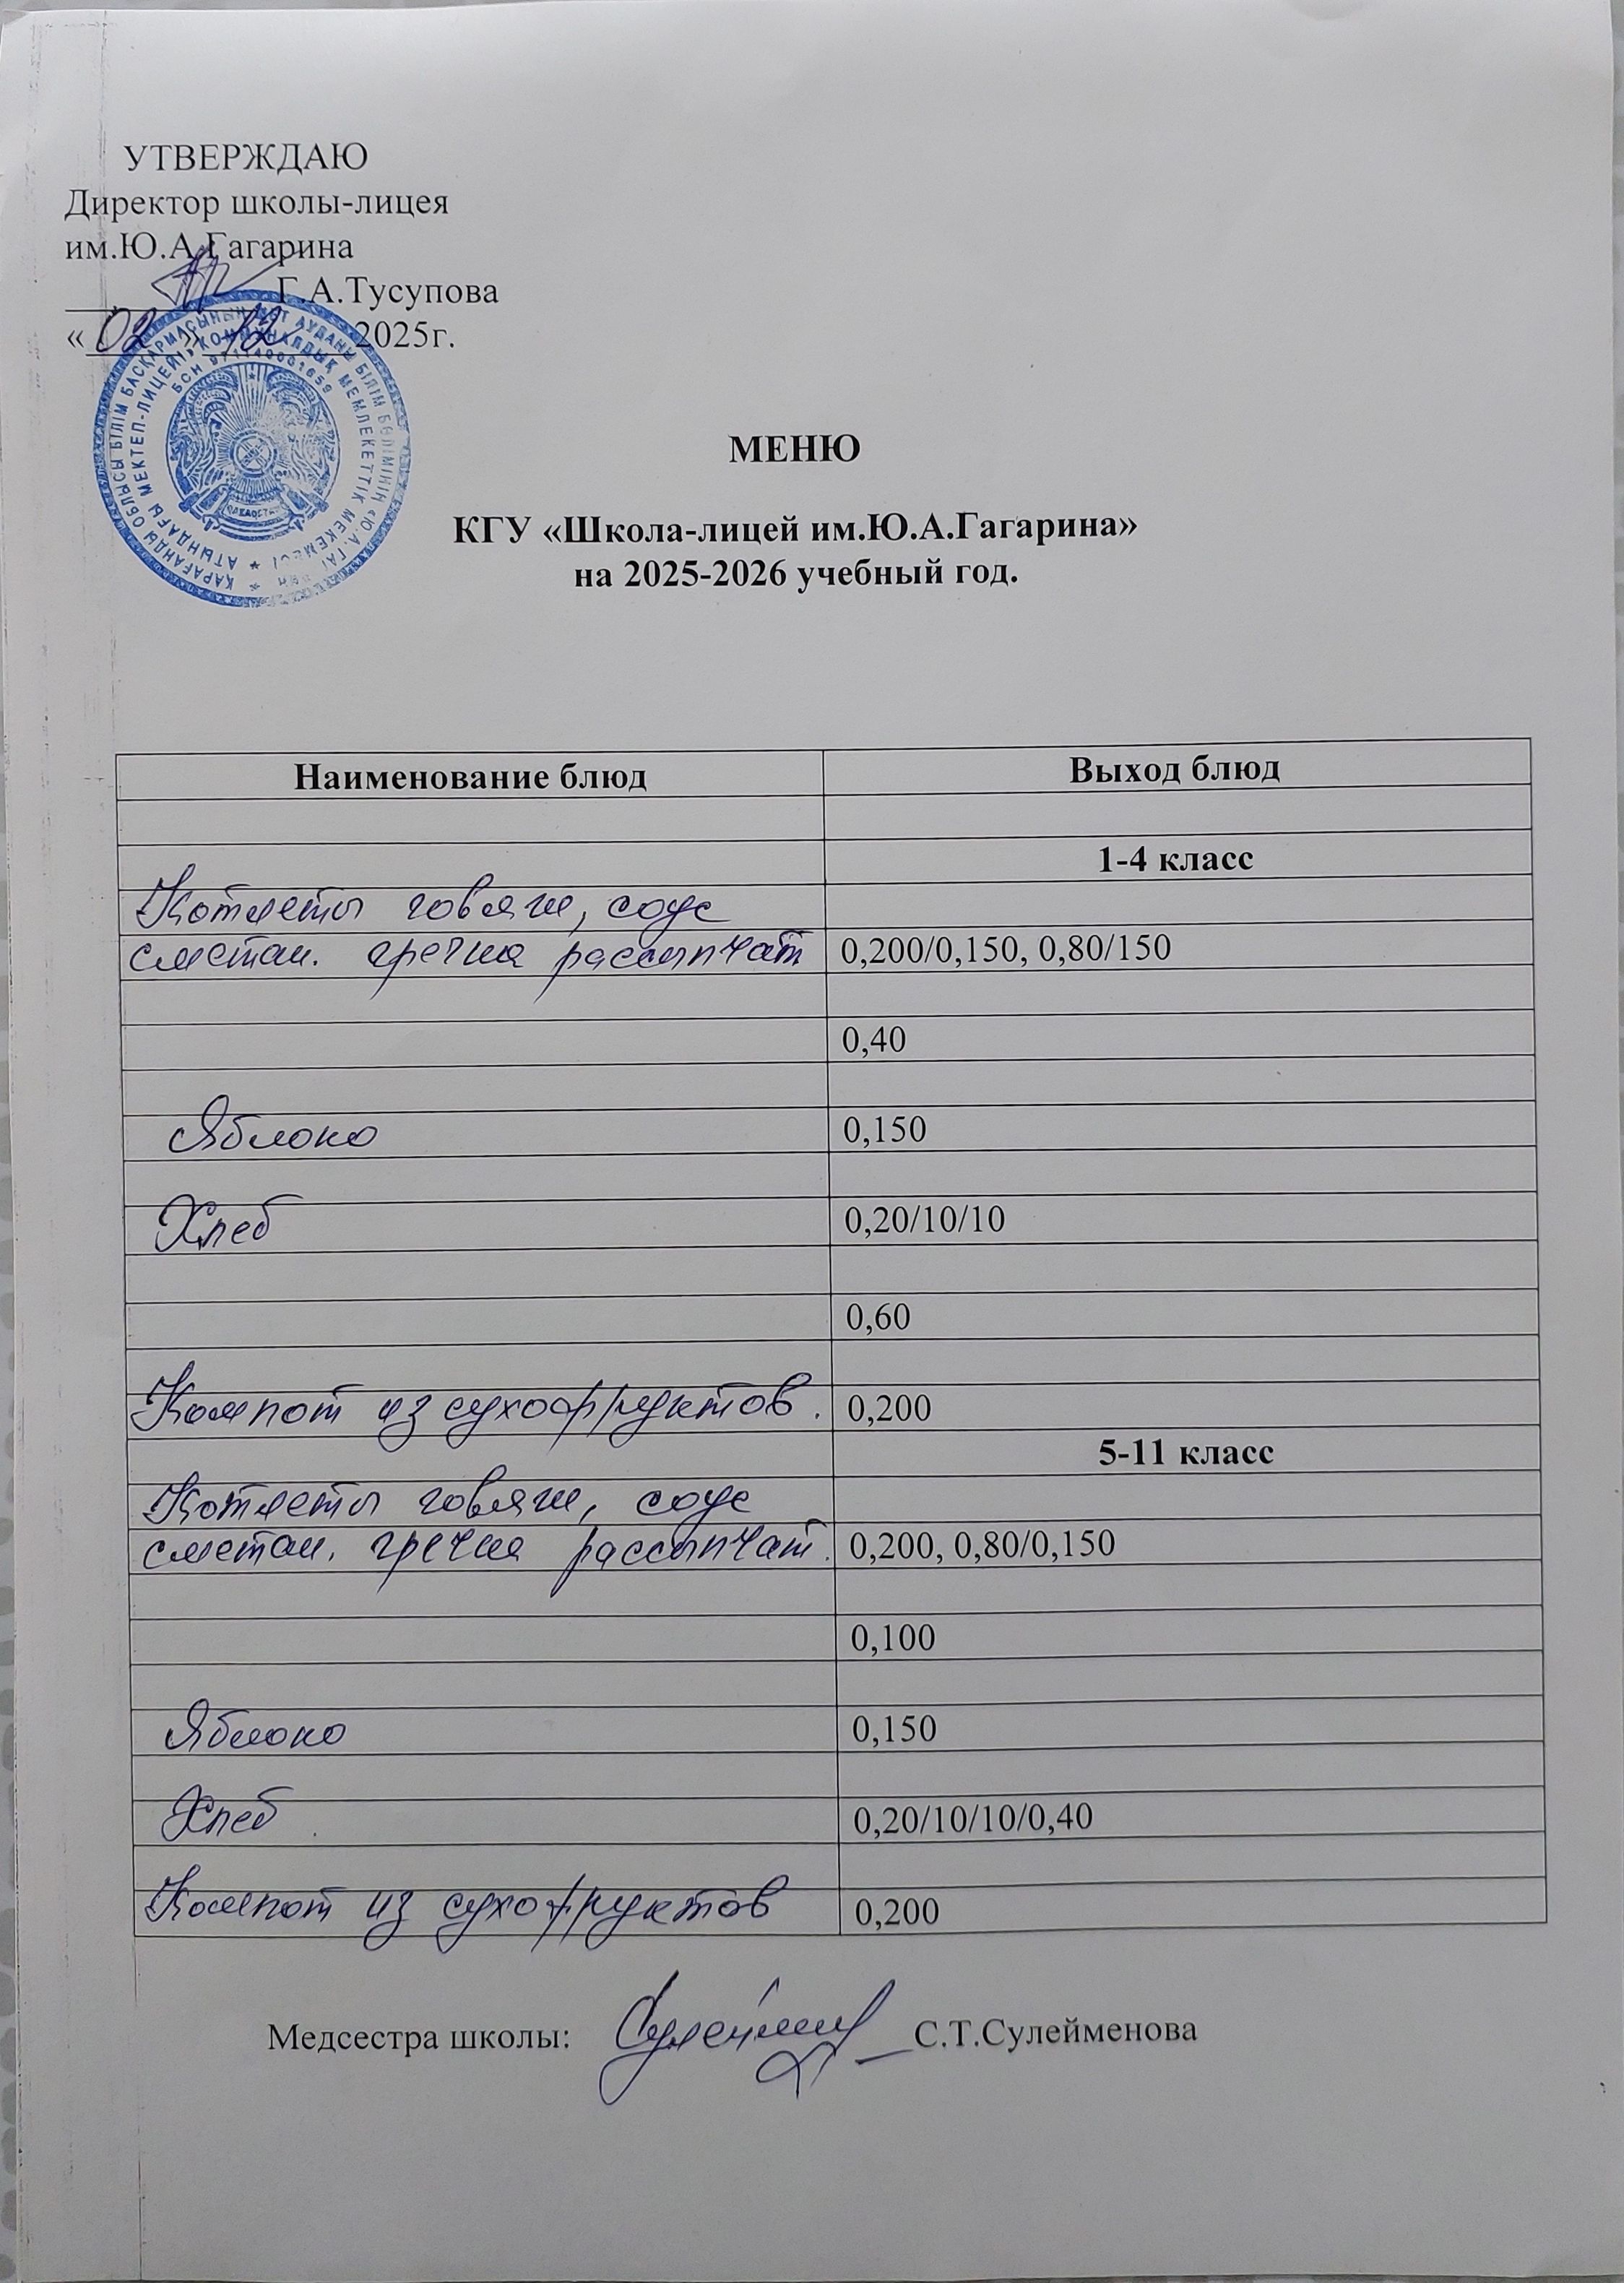 УТВЕРЖДАЮ
Директор школы-лицея
им.Ю.А.Гагарина
Г.А.Тусупова
«02» 12 2025г.
БСН
МЕНЮ
КГУ «Школа-лицей им.Ю.А.Гагарина»
на 2025-2026 учебный год.
Наименование блюд Выход блюд
1-4 класс
Котлеты говяж, соус
сметан. гречка рассыпчат 0,200/0,150, 0,80/150
0,40
Яблоко 0,150
Хлеб 0,20/10/10
0,60
Компот из сухофруктов. 0,200
5-11 класс
Котлеты говяж, соус
сметан. гречка рассыпчат. 0,200, 0,80/0,150
0,100
Яблоко 0,150
Хлеб 0,20/10/10/0,40
Компот из сухофруктов 0,200
Медсестра школы: С.Т.Сулейменова